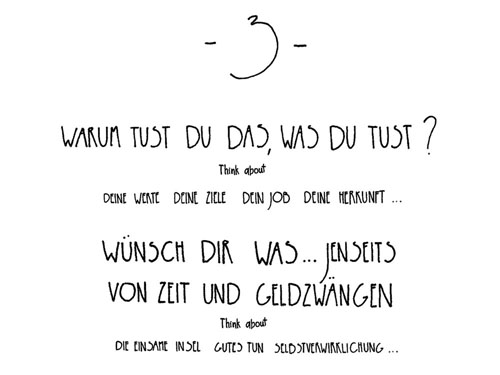 - 3 -
WARUM TUST DU DAS, WAS DU TUST?
Think about
DEINE WERTE DEINE ZIELE DEIN JOB DEINE HERKUNFT ...
WÜNSCH DIR WAS... JENSEITS
VON ZEIT UND GELDZWÄNGEN
Think about
DIE EINSAME INSEL GUTES TUN SELBSTVERWIRKLICHUNG ...